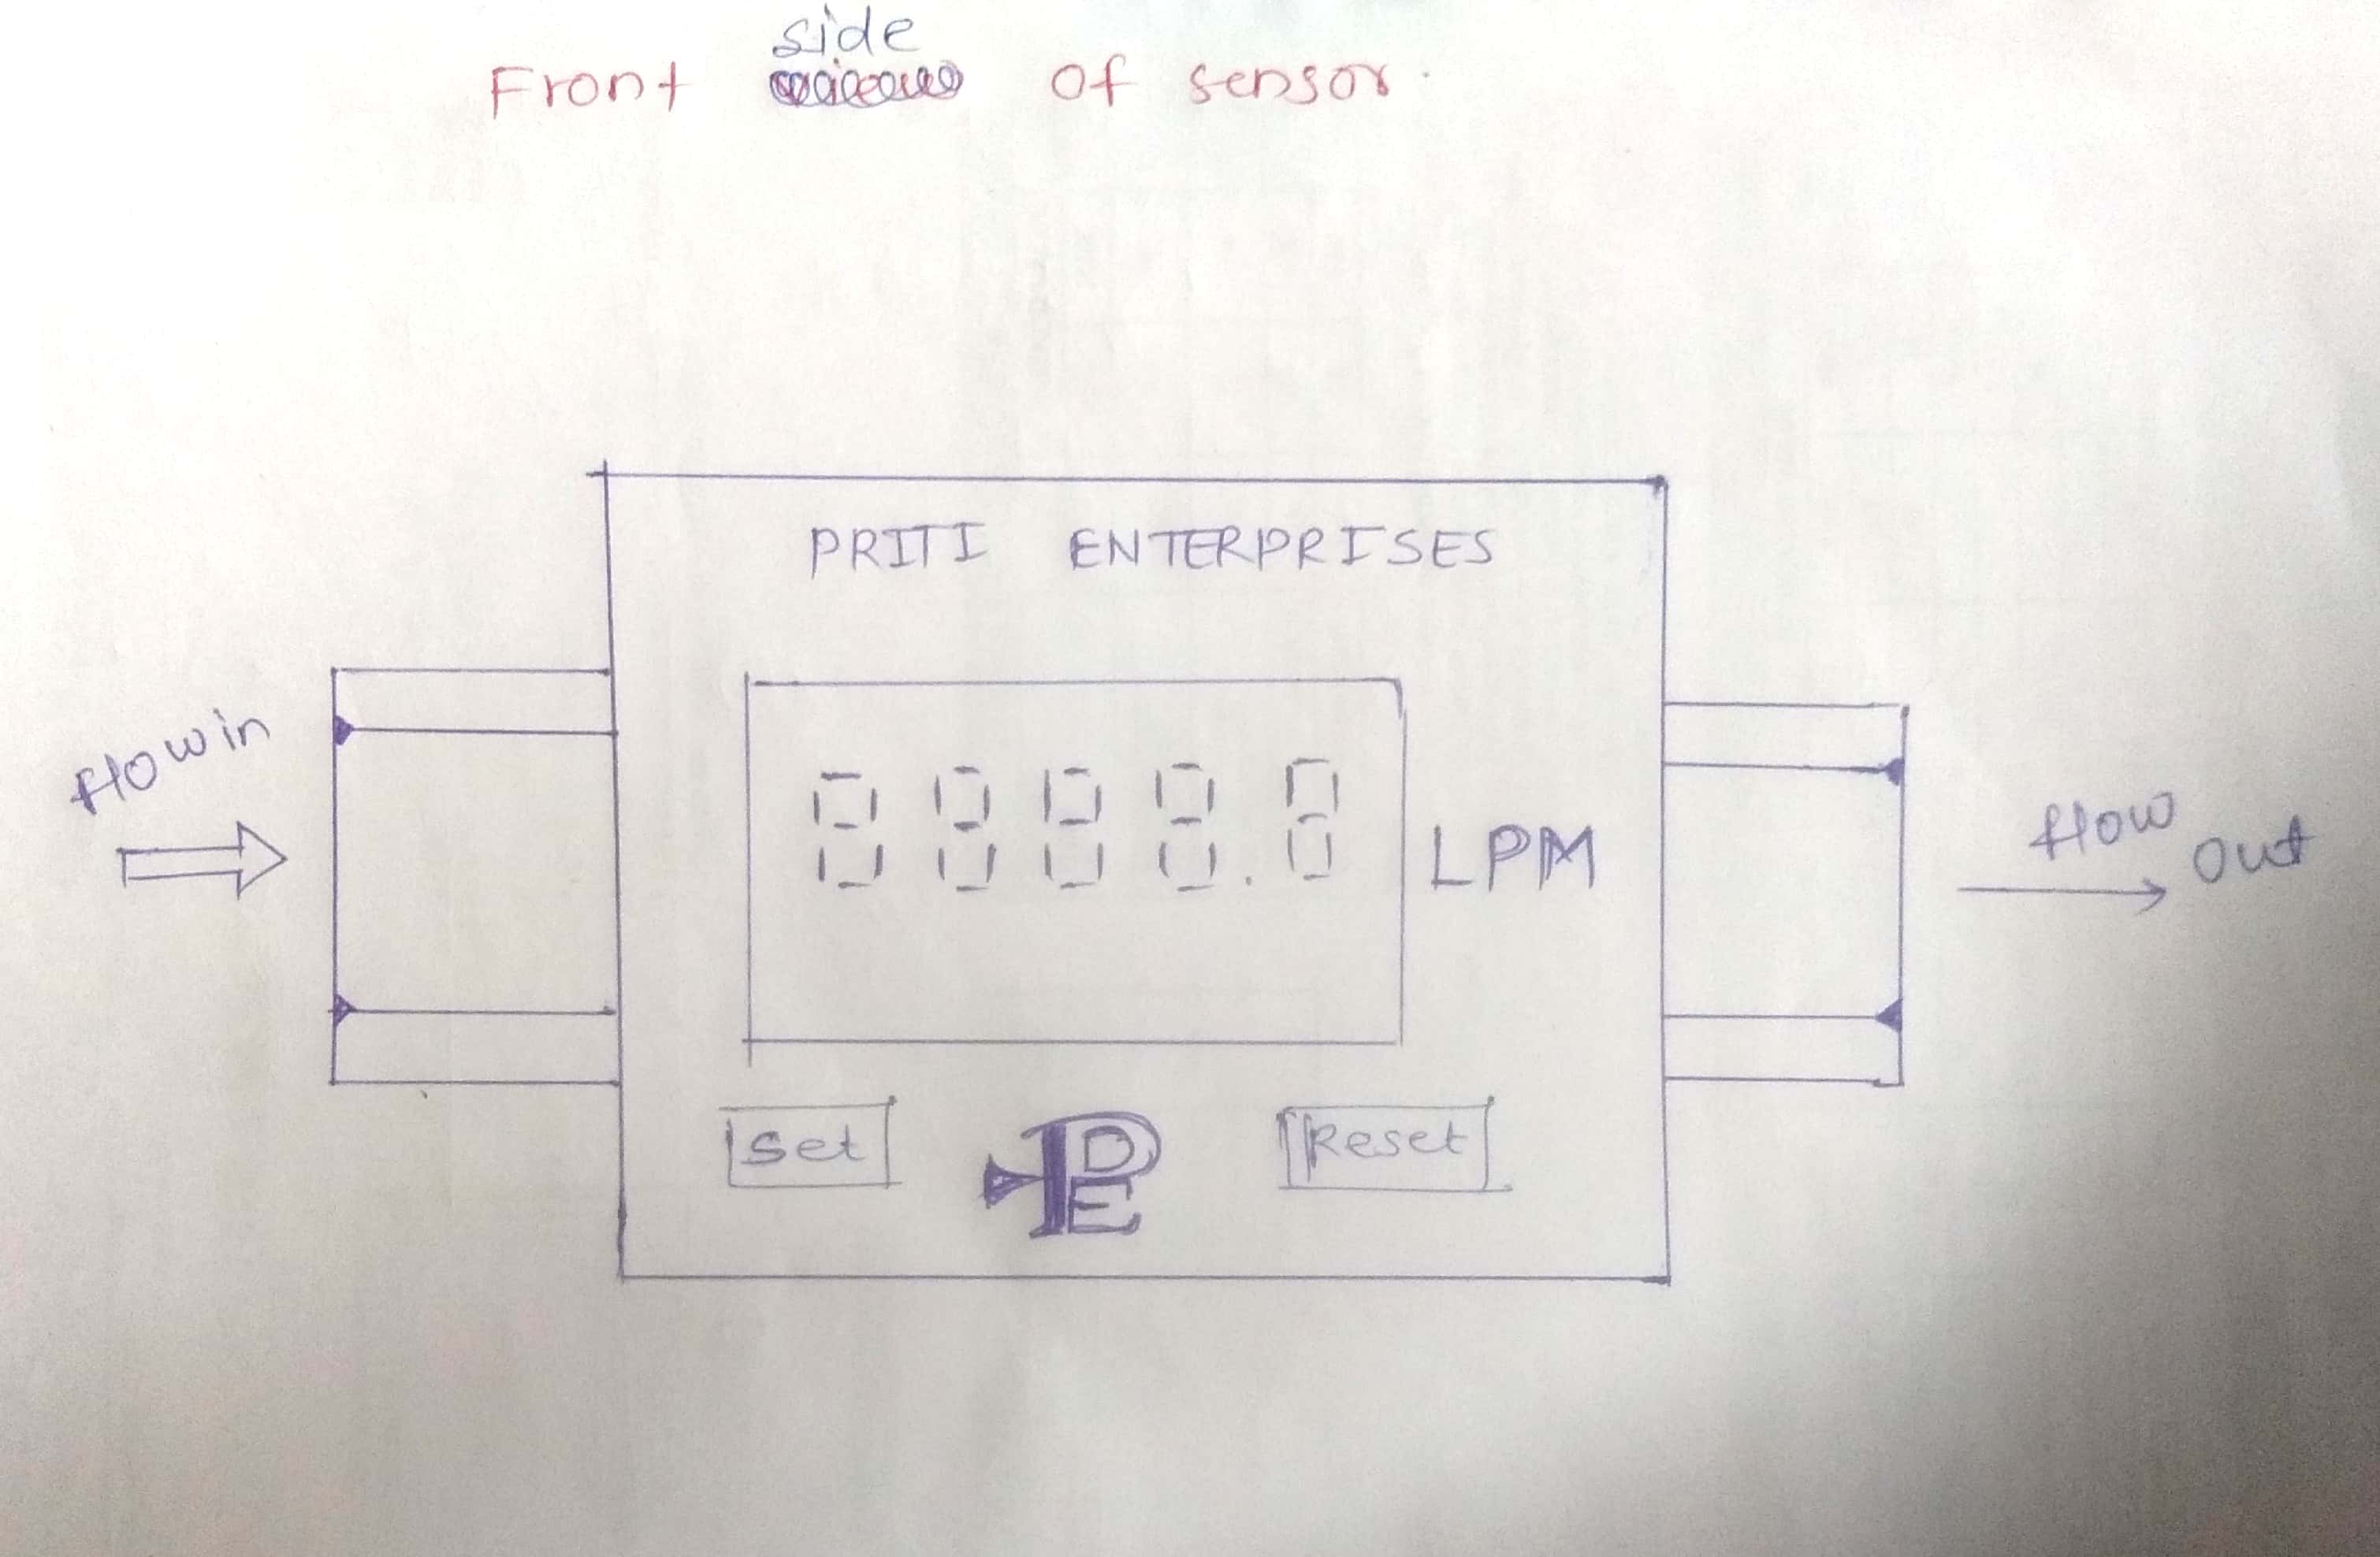 side
Front of sensor.
PRITI ENTERPRISES
flow in
8888.8
LPM
flow
out
Set
PE
Reset